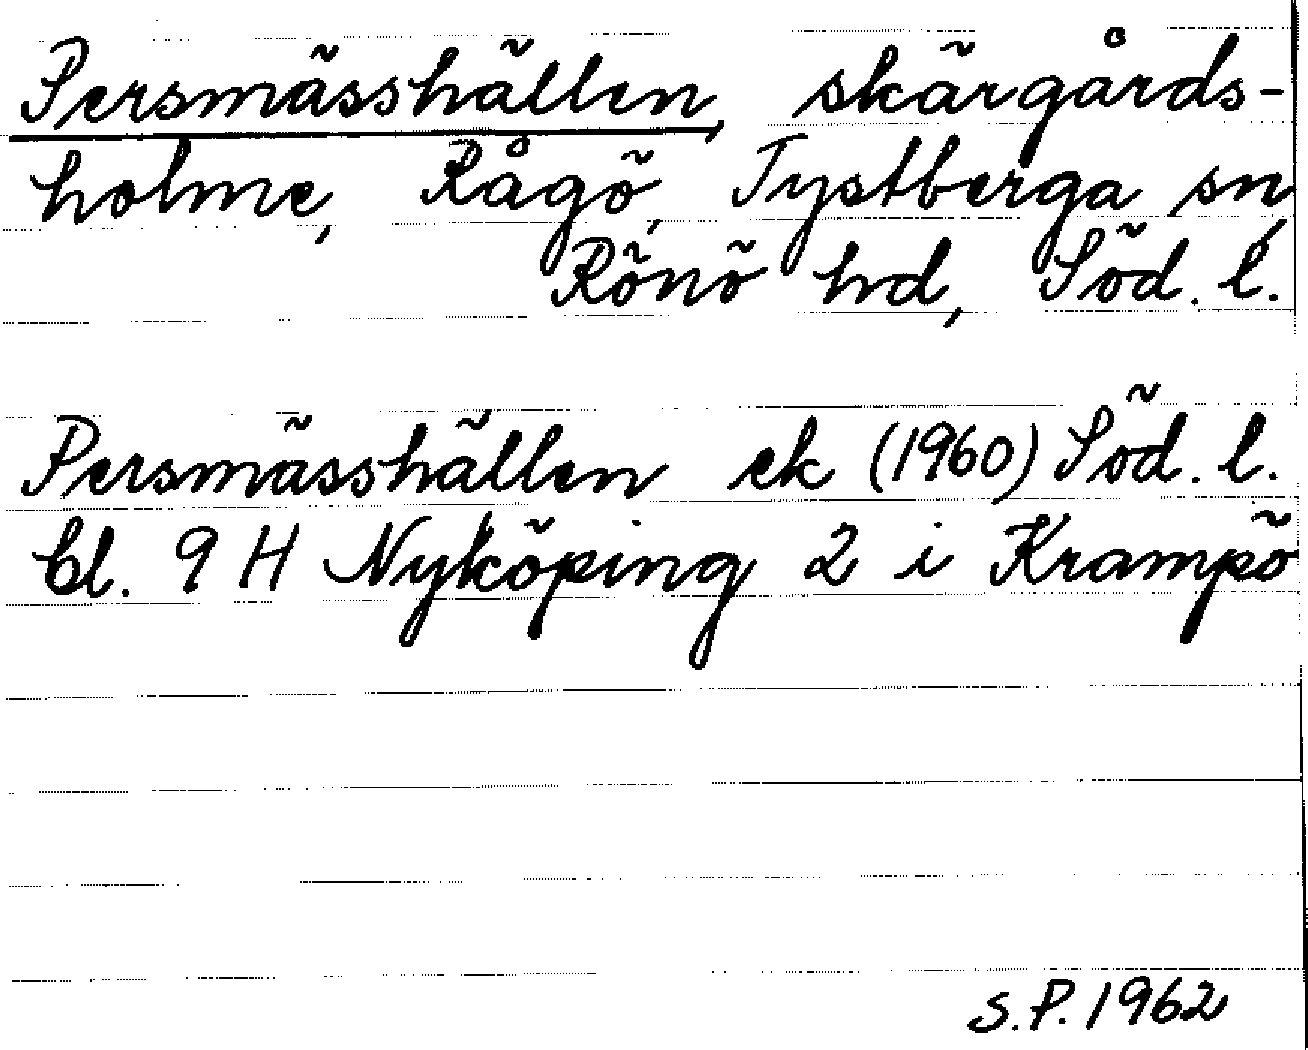 Persmässhällen, skärgårds-
holme, Rågö, Tystberga sn,
Rönö hd, Söd. l.
Persmässhällen ek (1960) Söd. l.
bl. 9 H Nyköping 2 i Krampö
S.P. 1962